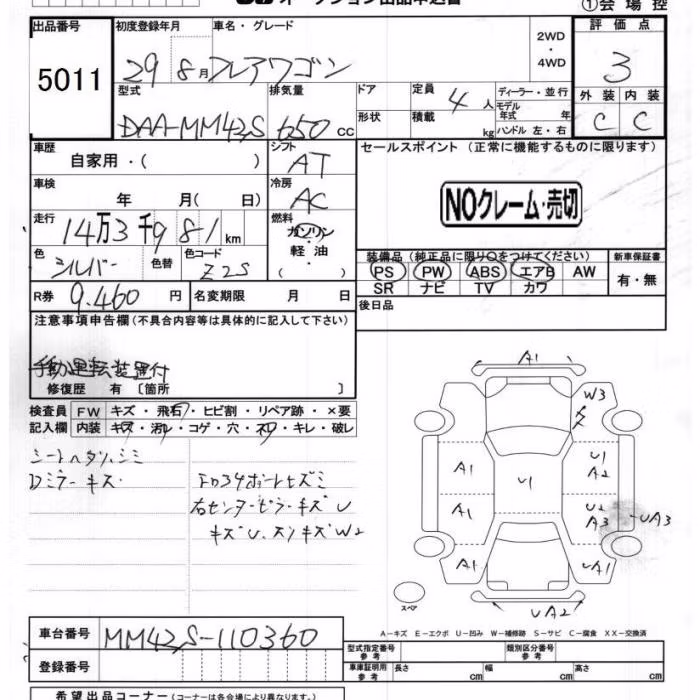 オークション出品申込書
①会場控
出品番号 初度登録年月 車名・グレード 2WD・4WD 評価点
5011 29 8月 フレアワゴン 3
型式 排気量 ドア 定員 4人 ディーラー・並行 外装 内装
DAA-MM42S 650 cc 形状 積載 kg モデル年式 年 C C
ハンドル 左・右
車歴 自家用・( ) シフト AT セールスポイント (正常に機能するものに限ります)
車検 年 月( 日) 冷房 AC
NOクレーム・売切
走行 14万3千981km 燃料 ガソリン・軽油・( )
色 シルバー 色替 色コード Z2S
装備品(純正品に限り○をつけてください) 新車保証書
PS PW ABS エアB AW 有・無
SR ナビ TV カワ
R券 9.460円 名変期限 月 日 後日品
注意事項申告欄(不具合内容等は具体的に記入して下さい)
手動運転装置付
修復歴 有〔箇所 〕
検査員 FW キズ・飛石・ヒビ割・リペア跡・×要
記入欄 内装 キズ・汚れ・コゲ・穴・スレ・キレ・破レ
シートヘタリ、シミ
Dミラーキズ
右センターピラーキズU
キズU、スリキズW2
A1
W3
A1 U1 U1 A2
A1 U2 A3 UA3
A1 UA1
UA2
スペア
A-キズ E-エクボ U-凹み W-補修跡 S-サビ C-腐食 XX-交換済
車台番号 MM42S-110360
型式指定番号 参考 類別区分番号 参考
登録番号 車庫証明用 参考 長さ cm 幅 cm 高さ cm
希望出品コーナー(コーナーは各会場により異なります)